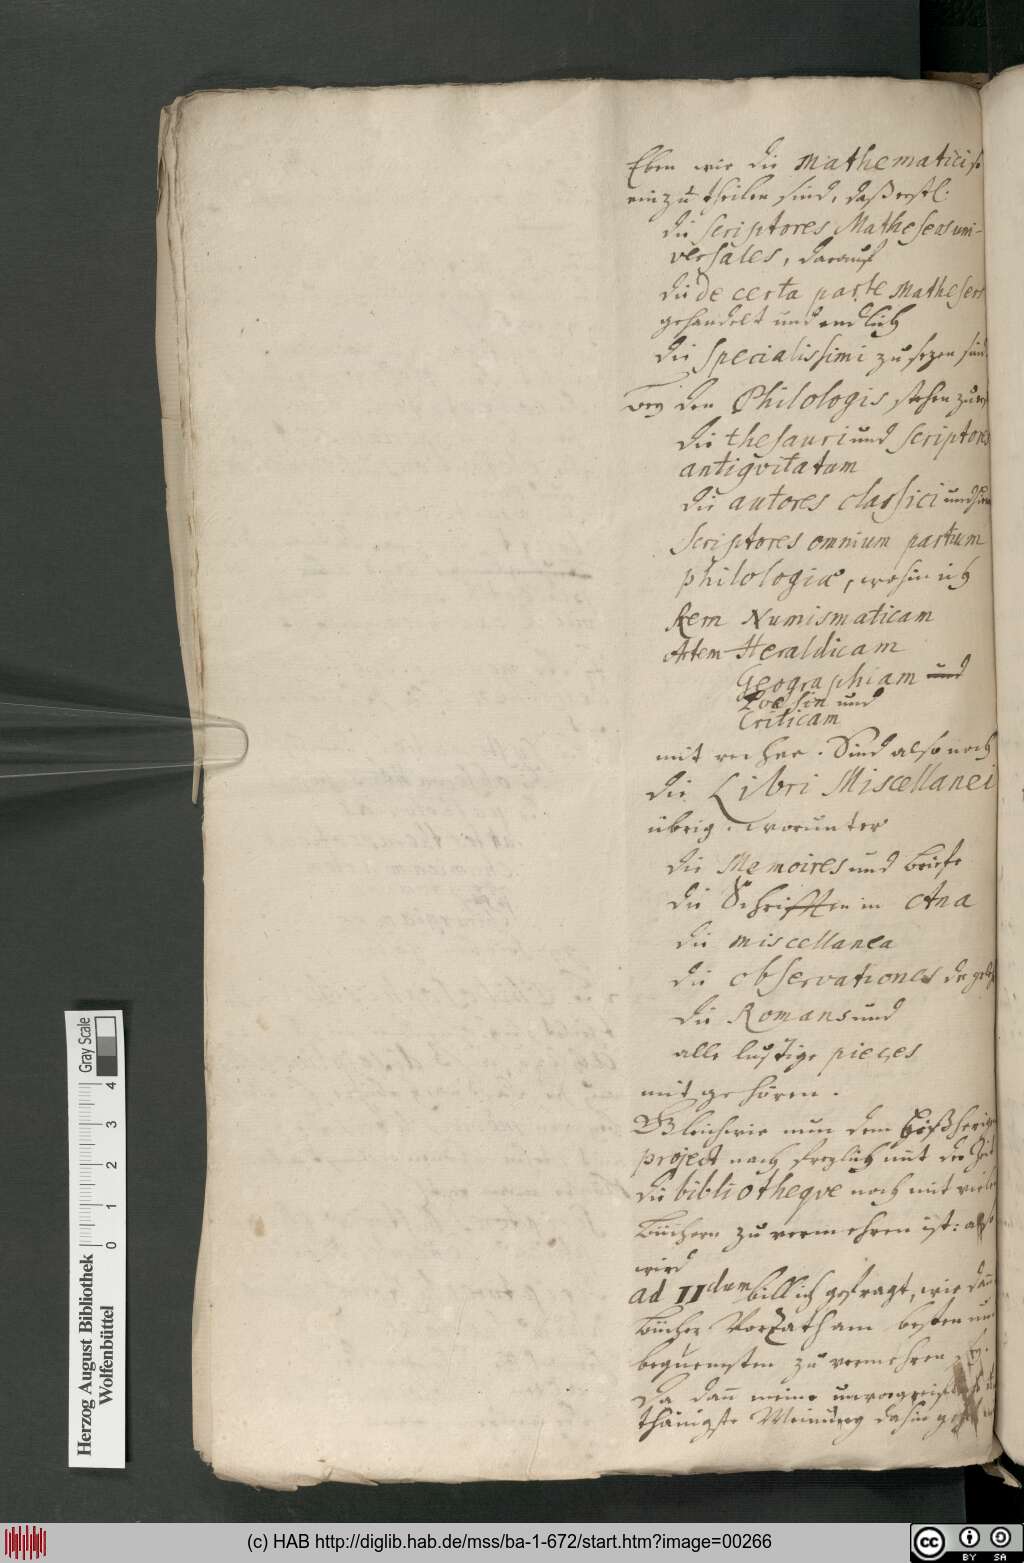 Eben wie die Mathematici so
einzutheilen sind, daß erstl.
die scriptores Matheseos uni-
versales, darauf
die de certa parte Matheseos
gehandelt und endlich
die specialissimi zu sezen sind
bey den Philologis stehen zuerst
die thesauri und scriptores
antiqvitatum
die autores classici und
Scriptores omnium partium
philologiæ, wohin ich
Rem Numismaticam
Artem Heraldicam
Geographiam und
Poësin und
Criticam
mit rechne. Sind also noch
die Libri Miscellanei
übrig. worunter
die Memoires und briefe
die Schrifften in Ana
die miscellanea
die observationes der
die Romans und
alle lustige pieçes
mit gehören.
Gleichwie nun dem bißherigen
project nach freylich mit der Zeit
die bibliotheqve noch mit vielen
Büchern zu vermehren ist: also
wird
ad IIdum billich gefragt, wie dann
Bücher Vorrath am besten und
bequemsten zu vermehren sey.
Da dann meine unvorgreifliche
thänigste Meinung dahin
Herzog August Bibliothek
Wolfenbüttel
0 1 2 3 4
Gray Scale
(c) HAB http://diglib.hab.de/mss/ba-1-672/start.htm?image=00266
cc BY SA